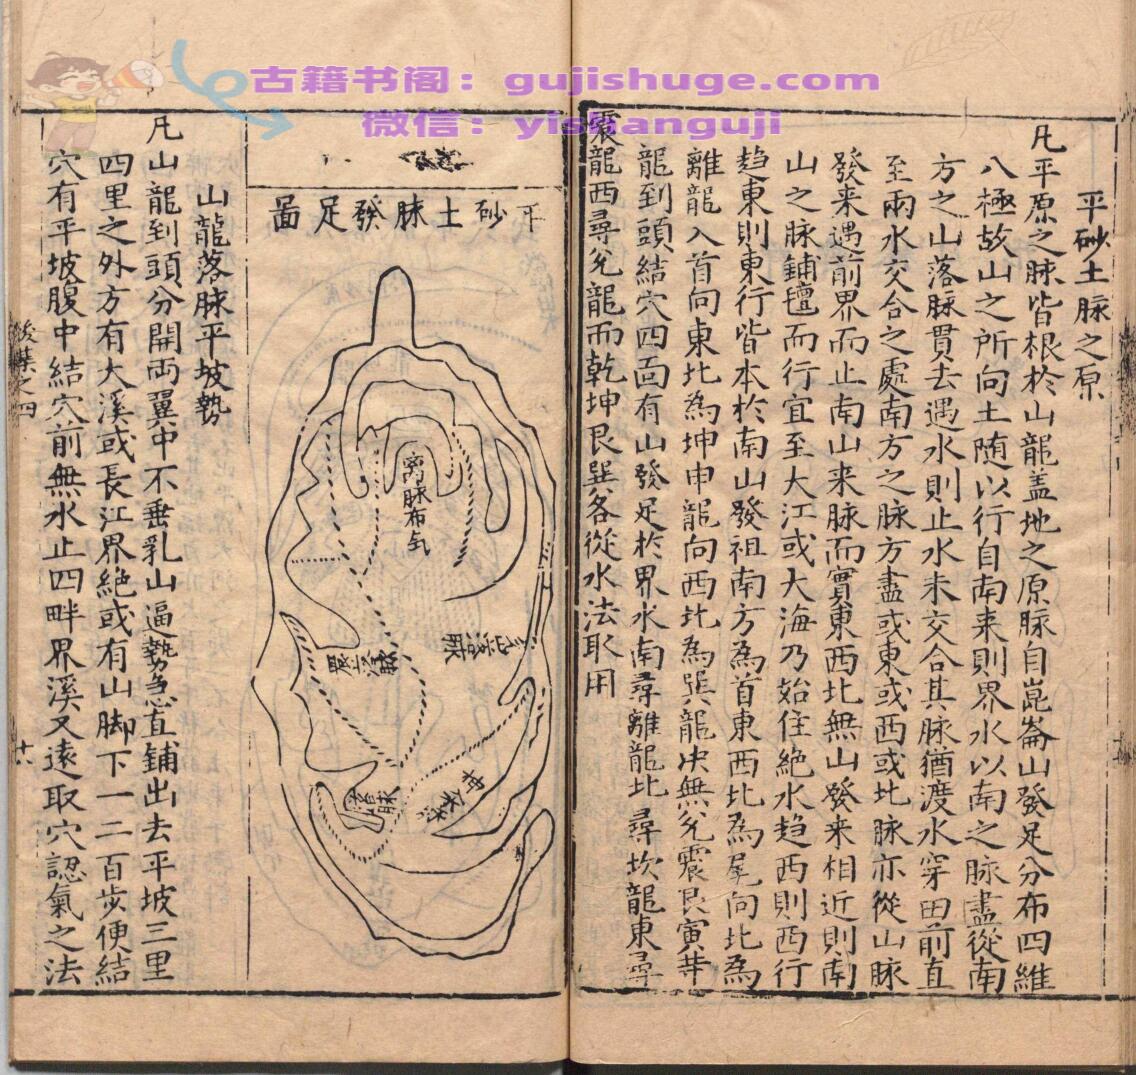 古籍书阁：gujishuge.com
微信：yishanguji
平砂土脉之原
凡平原之脉皆根於山龍盖地之原脉自崑崙山發足分布四維
八極故山之所向土随以行自南来則界水以南之脉盡從南
方之山落脉貫去遇水則止水未交合其脉猶渡水穿田前直
至兩水交合之處南方之脉方盡或東或西或北脉亦從山脉
發来遇前界而止南山来脉而實東西北無山發来相近則南
山之脉鋪氊而行宜至大江或大海乃始住絶水趋西則西行
趋東則東行皆本於南山發祖南方為首東西北為尾向北為
離龍入首向東北為坤申龍向西北為巽龍决無兊震艮寅廿
龍到頭結穴四面有山發足於界水南尋離龍北尋坎龍東尋
震龍西尋兊龍而乾坤艮巽各從水法取用
平砂土脉發足啚
离脉布气
落脉
坤
山龍落脉平坡勢
凡山龍到頭分開两翼中不垂乳山逼勢急直鋪出去平坡三里
四里之外方有大溪或長江界絶或有山脚下一二百步便結
穴有平坡腹中結穴前無水止四畔界溪又遠取穴認氣之法
後集之四
十六